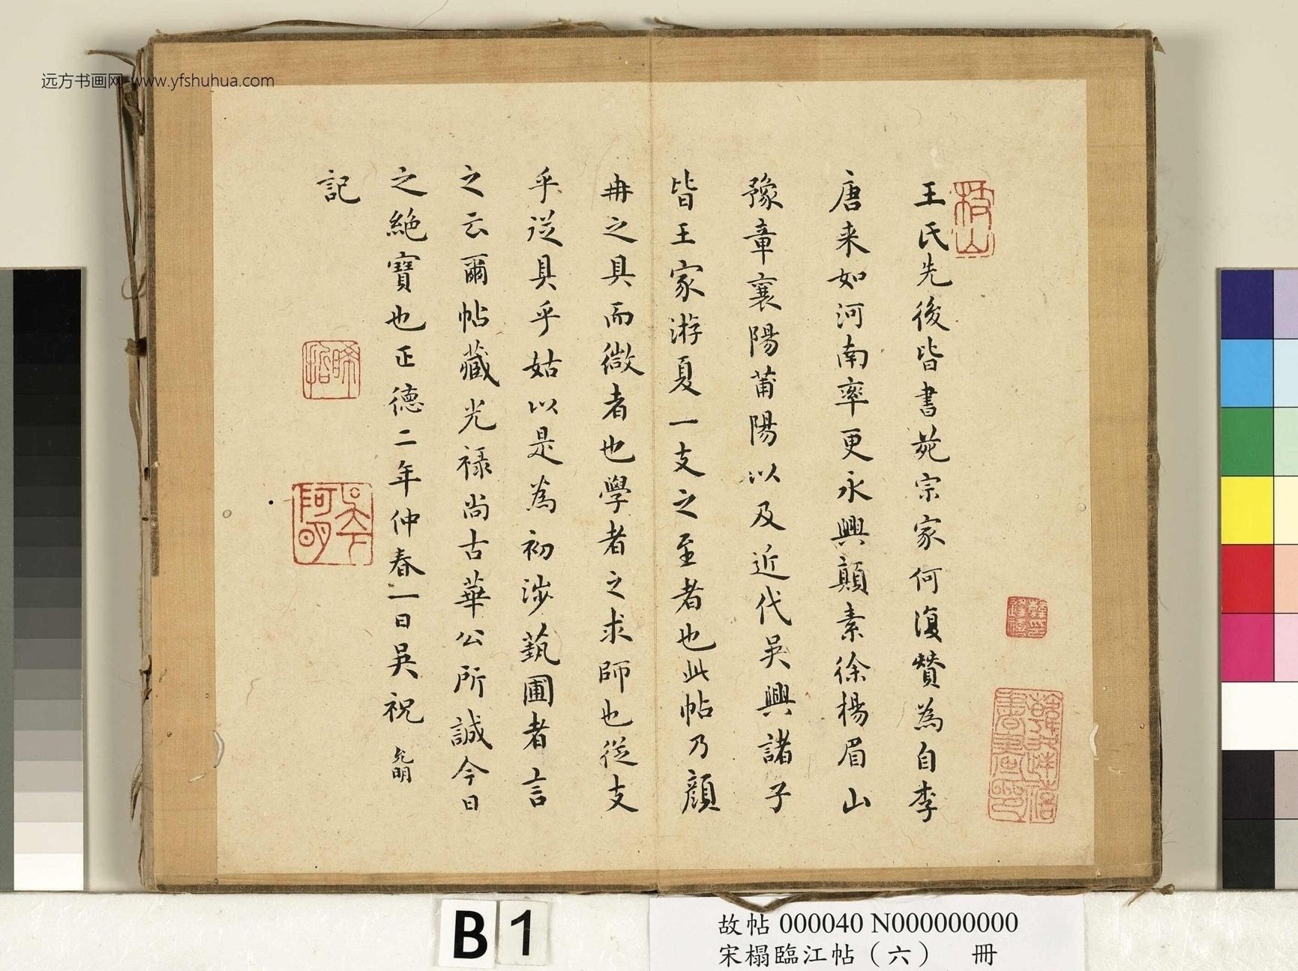 远方书画网 www.yfshuhua.com
枝山
王氏先後皆書苑宗家何復贊為自李
唐来如河南率更永興顛素徐楊眉山
豫章襄陽莆陽以及近代吳興諸子
皆王家游夏一支之至者也此帖乃顏
冉之具而微者也學者之求師也從支
乎従具乎姑以是為初涉藝圃者言
之云爾帖藏光禄尚古華公所誠今日
之絕寶也正德二年仲春一日吳祝
允明
記
晞哲
B1
故帖 000040 N000000000
宋榻臨江帖（六） 冊